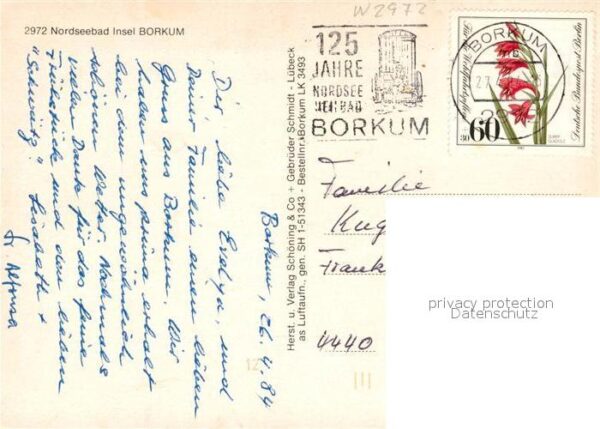 W 2972
2972 Nordseebad Insel BORKUM
125
JAHRE
NORDSEE
HEILBAD
BORKUM
BORKUM
Für die Wohlfahrtspflege
Deutsche Bundespost Berlin
60
30
Herst. u. Verlag Schöning & Co + Gebrüder Schmidt - Lübeck
as Luftaufn., gen. SH 1-51343 - Bestellnr. Borkum LK 3493
Borkum, 26.4.84
Dir liebe Evelyn, und
Deiner Familie einen lieben
Gruss aus Borkum. Wir
haben uns prima erholt
bei dem ungewöhnlich
schönen Wetter. Nochmals
vielen Dank für das feine
Frühstück und den lieben
"Schwatz". Elisabeth +
Familie
Kug
Frank
4440
privacy protection
Datenschutz